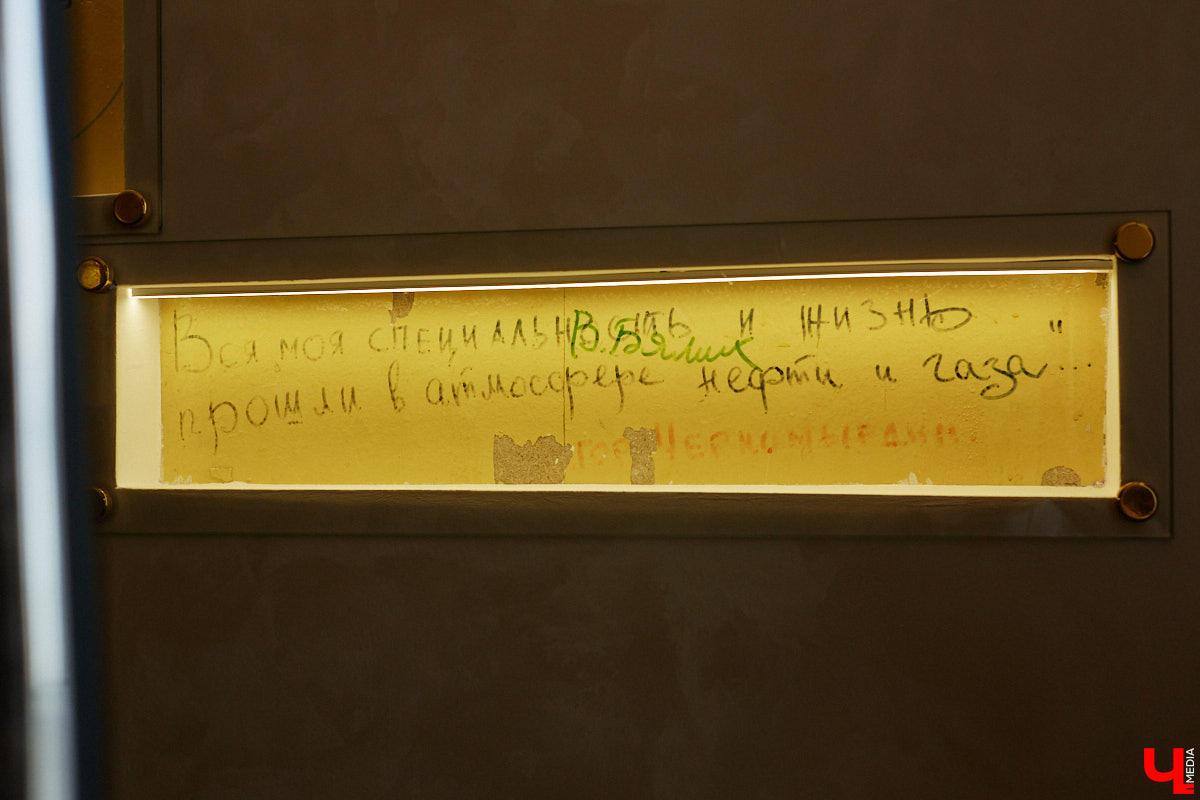 Вся моя специальность и жизнь
В. Бялик
прошли в атмосфере нефти и газа"...
Черномырдин
Ч MEDIA